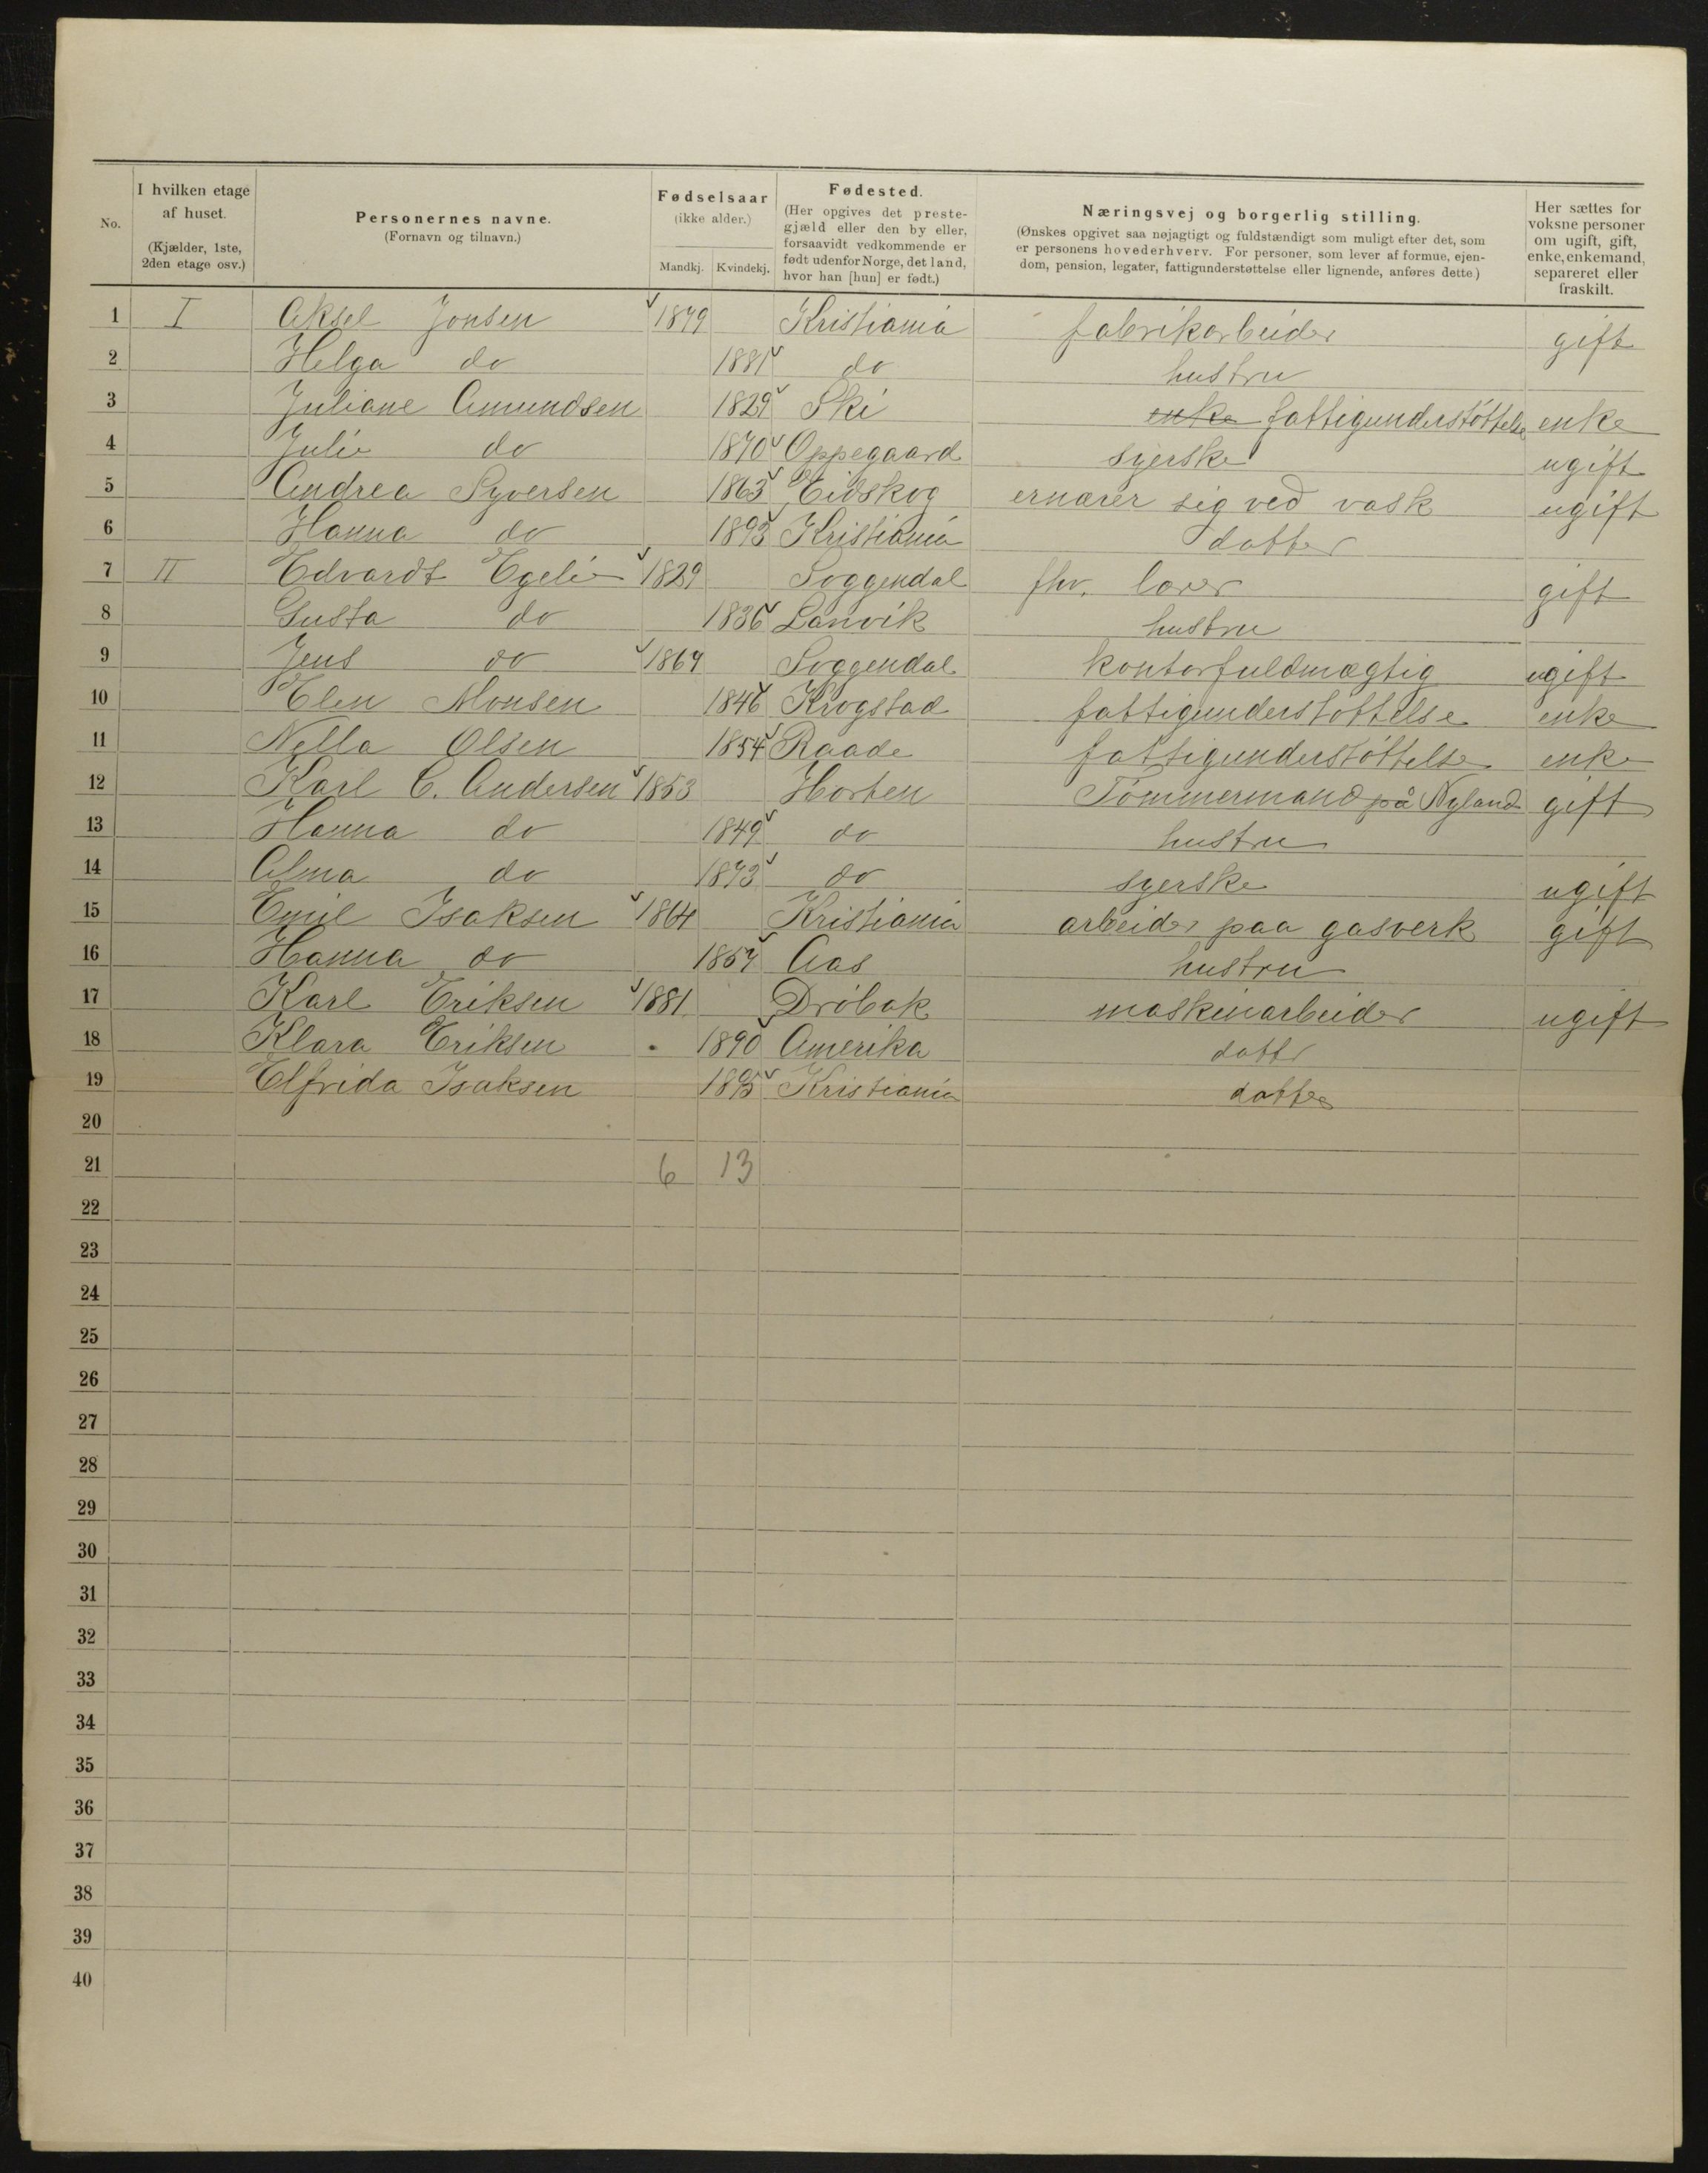 No.
I hvilken etage af huset. (Kjælder, 1ste, 2den etage osv.)
Personernes navne. (Fornavn og tilnavn.)
Fødselsaar (ikke alder.) Mandkj. Kvindekj.
Fødested. (Her opgives det prestegjæld eller den by eller, forsaavidt vedkommende er født udenfor Norge, det land, hvor han [hun] er født.)
Næringsvej og borgerlig stilling. (Ønskes opgivet saa nøjagtigt og fuldstændigt som muligt efter det, som er personens hovederhverv. For personer, som lever af formue, ejendom, pension, legater, fattigunderstøttelse eller lignende, anføres dette.)
Her sættes for voksne personer om ugift, gift, enke, enkemand, separeret eller fraskilt.
1 I Aksel Jonsen 1879 Kristiania fabrikarbeider gift
2 Helga do 1881 do hustru
3 Juliane Amundsen 1829 Ski enke fattigunderstøttelse enke
4 Julie do 1870 Oppegaard syerske ugift
5 Andrea Syversen 1863 Eidskog ernærer sig ved vask ugift
6 Hanna do 1893 Kristiania datter
7 II Edvardt Egelie 1829 Soggendal fhv. lærer gift
8 Gusta do 1836 Lanvik hustru
9 Jens do 1867 Soggendal kontorfuldmægtig ugift
10 Elen Monsen 1846 Krogstad fattigunderstøttelse enke
11 Nella Olsen 1854 Raade fattigunderstøttelse enke
12 Karl C. Andersen 1853 Horten Tømmermand på Nyland gift
13 Hanna do 1849 do hustru
14 Alma do 1873 do syerske ugift
15 Emil Isaksen 1864 Kristiania arbeider paa gasverk gift
16 Hanna do 1857 Aas hustru
17 Karl Eriksen 1881 Drøbak maskinarbeider ugift
18 Klara Eriksen 1890 Amerika datter
19 Elfrida Isaksen 1895 Kristiania datter
20
21 6 13
22
23
24
25
26
27
28
29
30
31
32
33
34
35
36
37
38
39
40